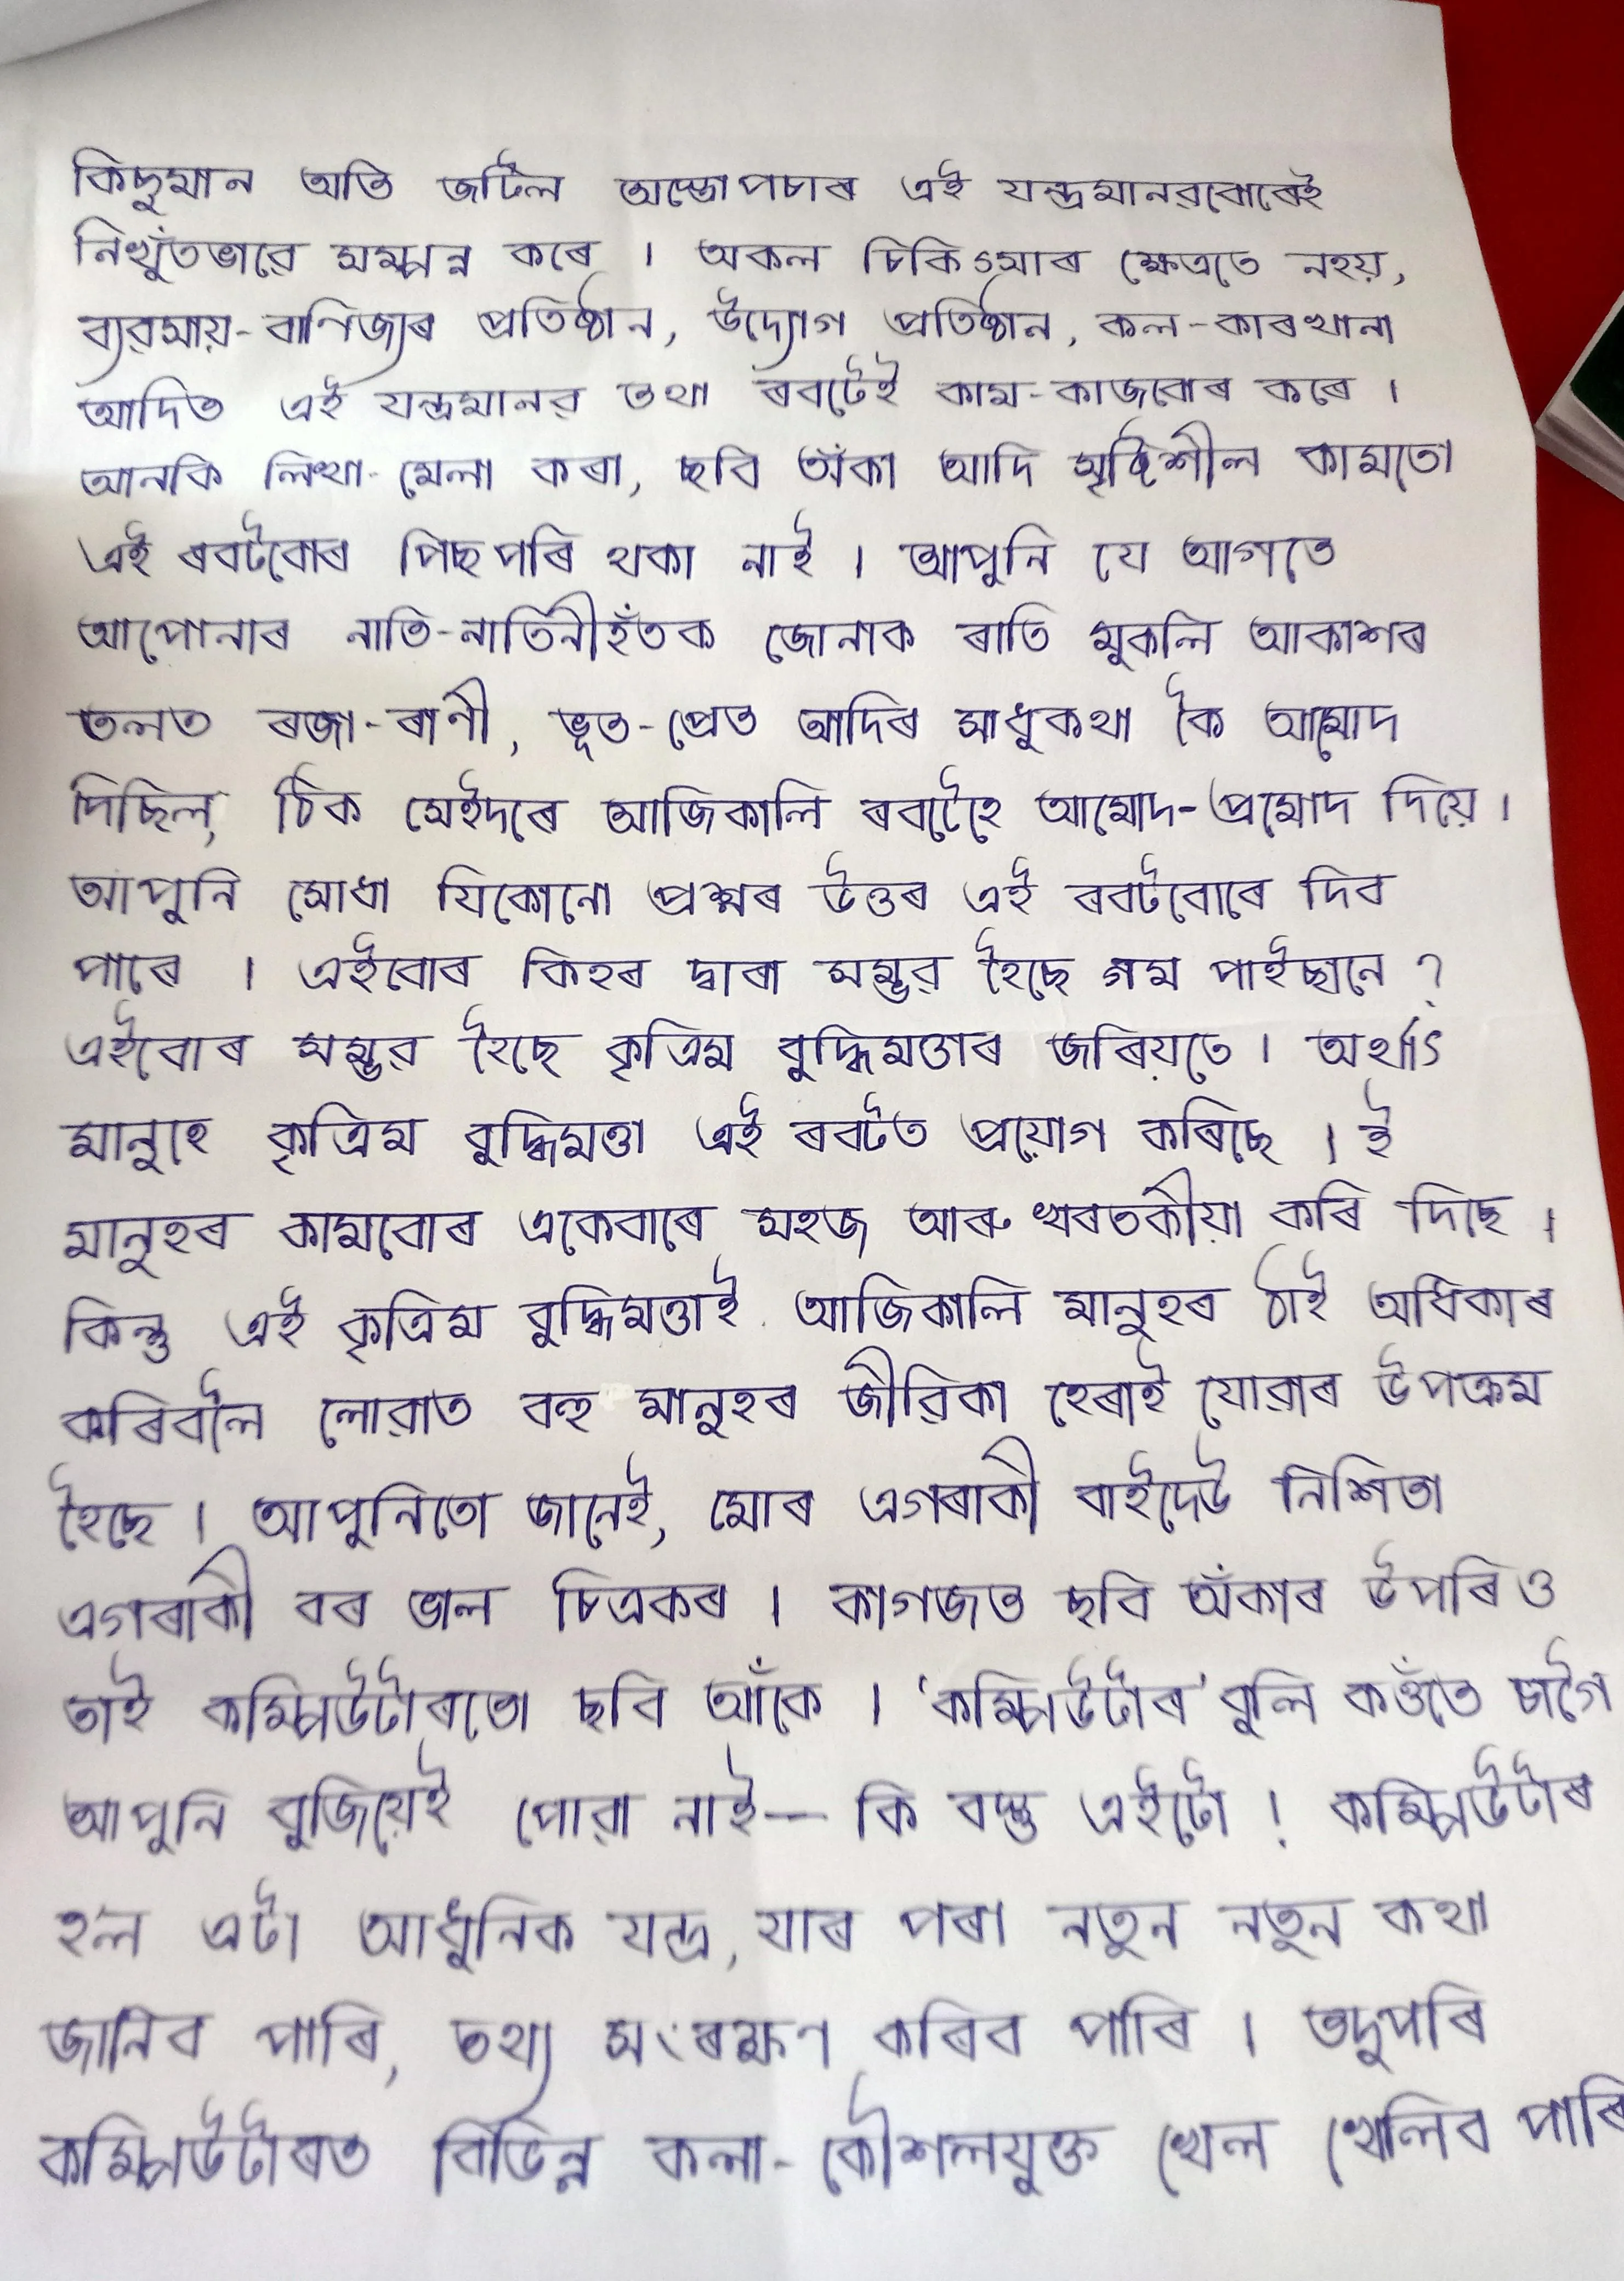 কিছুমান অতি জটিল অস্ত্ৰোপচাৰ এই যন্ত্ৰমানৱবোৰেই
নিখুঁতভাৱে সম্পন্ন কৰে । অকল চিকিৎসাৰ ক্ষেত্ৰতে নহয়,
ব্যৱসায়-বাণিজ্যৰ প্ৰতিষ্ঠান, উদ্যোগ প্ৰতিষ্ঠান, কল-কাৰখানা
আদিত এই যন্ত্ৰমানৱ তথা ৰবটেই কাম-কাজবোৰ কৰে ।
আনকি লিখা-মেলা কৰা, ছবি অঁকা আদি সৃষ্টিশীল কামতো
এই ৰবটবোৰ পিছপৰি থকা নাই । আপুনি যে আগতে
আপোনাৰ নাতি-নাতিনীহঁতক জোনাক ৰাতি মুকলি আকাশৰ
তলত ৰজা-ৰাণী, ভূত-প্ৰেত আদিৰ সাধুকথা কৈ আমোদ
দিছিল, ঠিক সেইদৰে আজিকালি ৰবটেহে আমোদ-প্ৰমোদ দিয়ে ।
আপুনি সোধা যিকোনো প্ৰশ্নৰ উত্তৰ এই ৰবটবোৰে দিব
পাৰে । এইবোৰ কিহৰ দ্বাৰা সম্ভৱ হৈছে গম পাইছানে ?
এইবোৰ সম্ভৱ হৈছে কৃত্ৰিম বুদ্ধিমত্তাৰ জৰিয়তে । অৰ্থাৎ
মানুহে কৃত্ৰিম বুদ্ধিমত্তা এই ৰবটত প্ৰয়োগ কৰিছে । ই
মানুহৰ কামবোৰ একেবাৰে সহজ আৰু খৰতকীয়া কৰি দিছে ।
কিন্তু এই কৃত্ৰিম বুদ্ধিমত্তাই আজিকালি মানুহৰ ঠাই অধিকাৰ
কৰিবলৈ লোৱাত বহু মানুহৰ জীৱিকা হেৰাই যোৱাৰ উপক্ৰম
হৈছে । আপুনিতো জানেই, মোৰ এগৰাকী বাইদেউ নিশিতা
এগৰাকী বৰ ভাল চিত্ৰকৰ । কাগজত ছবি অঁকাৰ উপৰিও
তাই কম্পিউটাৰতো ছবি আঁকে । 'কম্পিউটাৰ' বুলি কওঁতে চাগৈ
আপুনি বুজিয়েই পোৱা নাই— কি বস্তু এইটো ! কম্পিউটাৰ
হ'ল এটা আধুনিক যন্ত্ৰ, যাৰ পৰা নতুন নতুন কথা
জানিব পাৰি, তথ্য সংৰক্ষণ কৰিব পাৰি । তদুপৰি
কম্পিউটাৰত বিভিন্ন কলা-কৌশলযুক্ত খেল খেলিব পাৰি